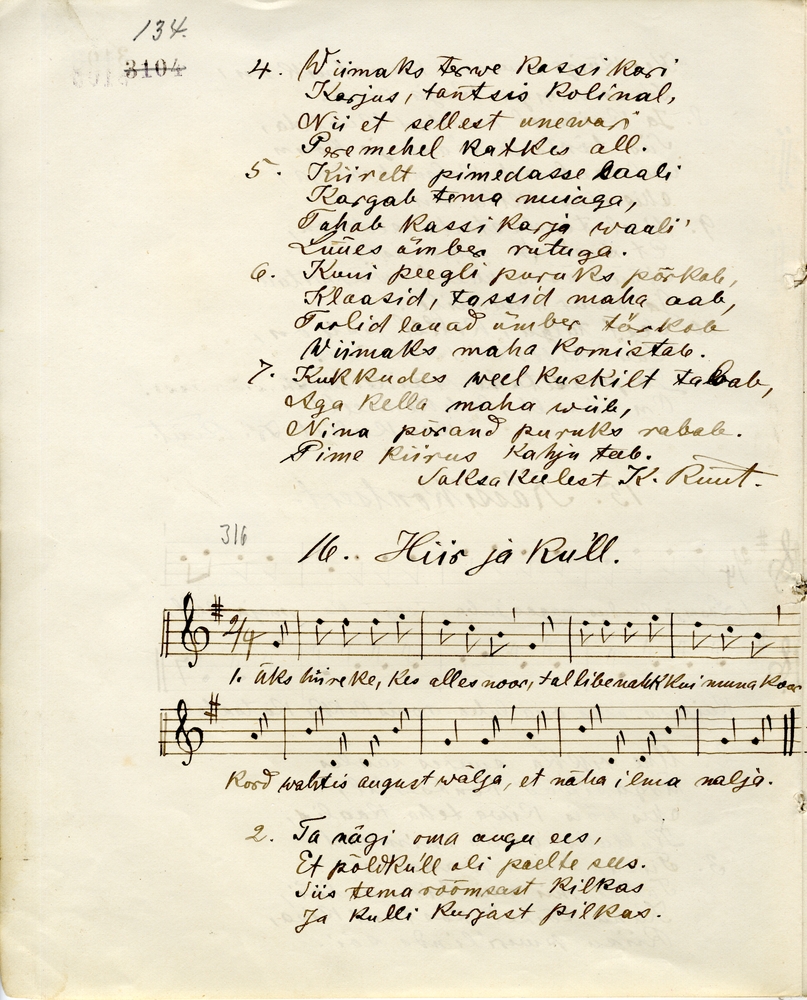 134.
3104
4. Wiimaks terwe kassikari
Karjus, tantsis kolinal,
Nii et sellest unewari
Peremehel katkes all.
5. Kiirelt pimedasse saali
Kargab tema nuiaga,
Tahab kassi karja waali'
Lüües ümber rutuga.
6. Kuni peegli puruks põrkab,
Klaasid, tassid maha aab,
Toolid lauad ümber tõrkab
Wiimaks maha komistab.
7. Kukkudes weel kuskilt tabab,
Aga kella maha wiib,
Nina põrand puruks rabab.
Pime kiirus kahju teb.
Saksakeelest K. Ruut.
316
16. Hiir ja kull.
2/4
1. Üks hiireke, kes alles noor, tal libe nahk kui muna koor
Kord wahtis august wälja, et näha ilma nalja.
2. Ta nägi oma augu ees,
Et põldkull oli paelte sees.
Siis tema rõõmsast kilkas
Ja kulli kurjast pilkas.